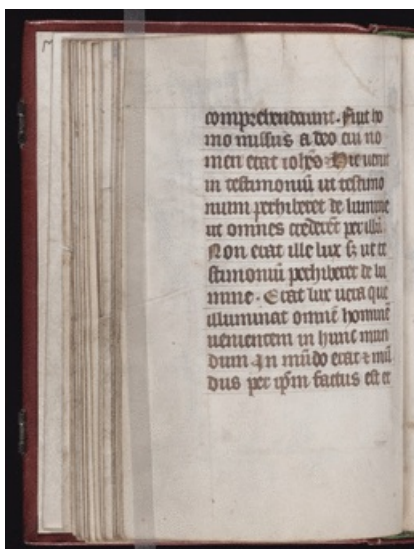 comprehenderunt. Fuit ho
mo missus a deo cui no
men erat ioh̄es. Hic uenit
in testimoniū ut testimo
nium perhiberet de lumine
ut omnes crederēt per illū.
Non erat ille lux sꝫ ut te
stimoniū perhiberet de lu
mine. Erat lux uera que
illuminat omnē hominē
uenientem in hunc mun
dum. In mūdo erat ⁊ mū
dus per ip̄m factus est et